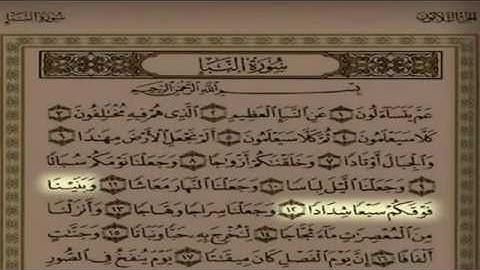 الجزء الثلاثون
سورة النبإ
سُورَةُ النَّبَإِ
بِسْمِ اللَّهِ الرَّحْمَٰنِ الرَّحِيمِ
عَمَّ يَتَسَاءَلُونَ ١ عَنِ النَّبَإِ الْعَظِيمِ ٢ الَّذِي هُمْ فِيهِ مُخْتَلِفُونَ ٣
كَلَّا سَيَعْلَمُونَ ٤ ثُمَّ كَلَّا سَيَعْلَمُونَ ٥ أَلَمْ نَجْعَلِ الْأَرْضَ مِهَادًا ٦
وَالْجِبَالَ أَوْتَادًا ٧ وَخَلَقْنَاكُمْ أَزْوَاجًا ٨ وَجَعَلْنَا نَوْمَكُمْ سُبَاتًا
٩ وَجَعَلْنَا اللَّيْلَ لِبَاسًا ١٠ وَجَعَلْنَا النَّهَارَ مَعَاشًا ١١ وَبَنَيْنَا
فَوْقَكُمْ سَبْعًا شِدَادًا ١٢ وَجَعَلْنَا سِرَاجًا وَهَّاجًا ١٣ وَأَنْزَلْنَا
مِنَ الْمُعْصِرَاتِ مَاءً ثَجَّاجًا ١٤ لِنُخْرِجَ بِهِ حَبًّا وَنَبَاتًا ١٥ وَجَنَّاتٍ
أَلْفَافًا ١٦ إِنَّ يَوْمَ الْفَصْلِ كَانَ مِيقَاتًا ١٧ يَوْمَ يُنْفَخُ فِي الصُّورِ